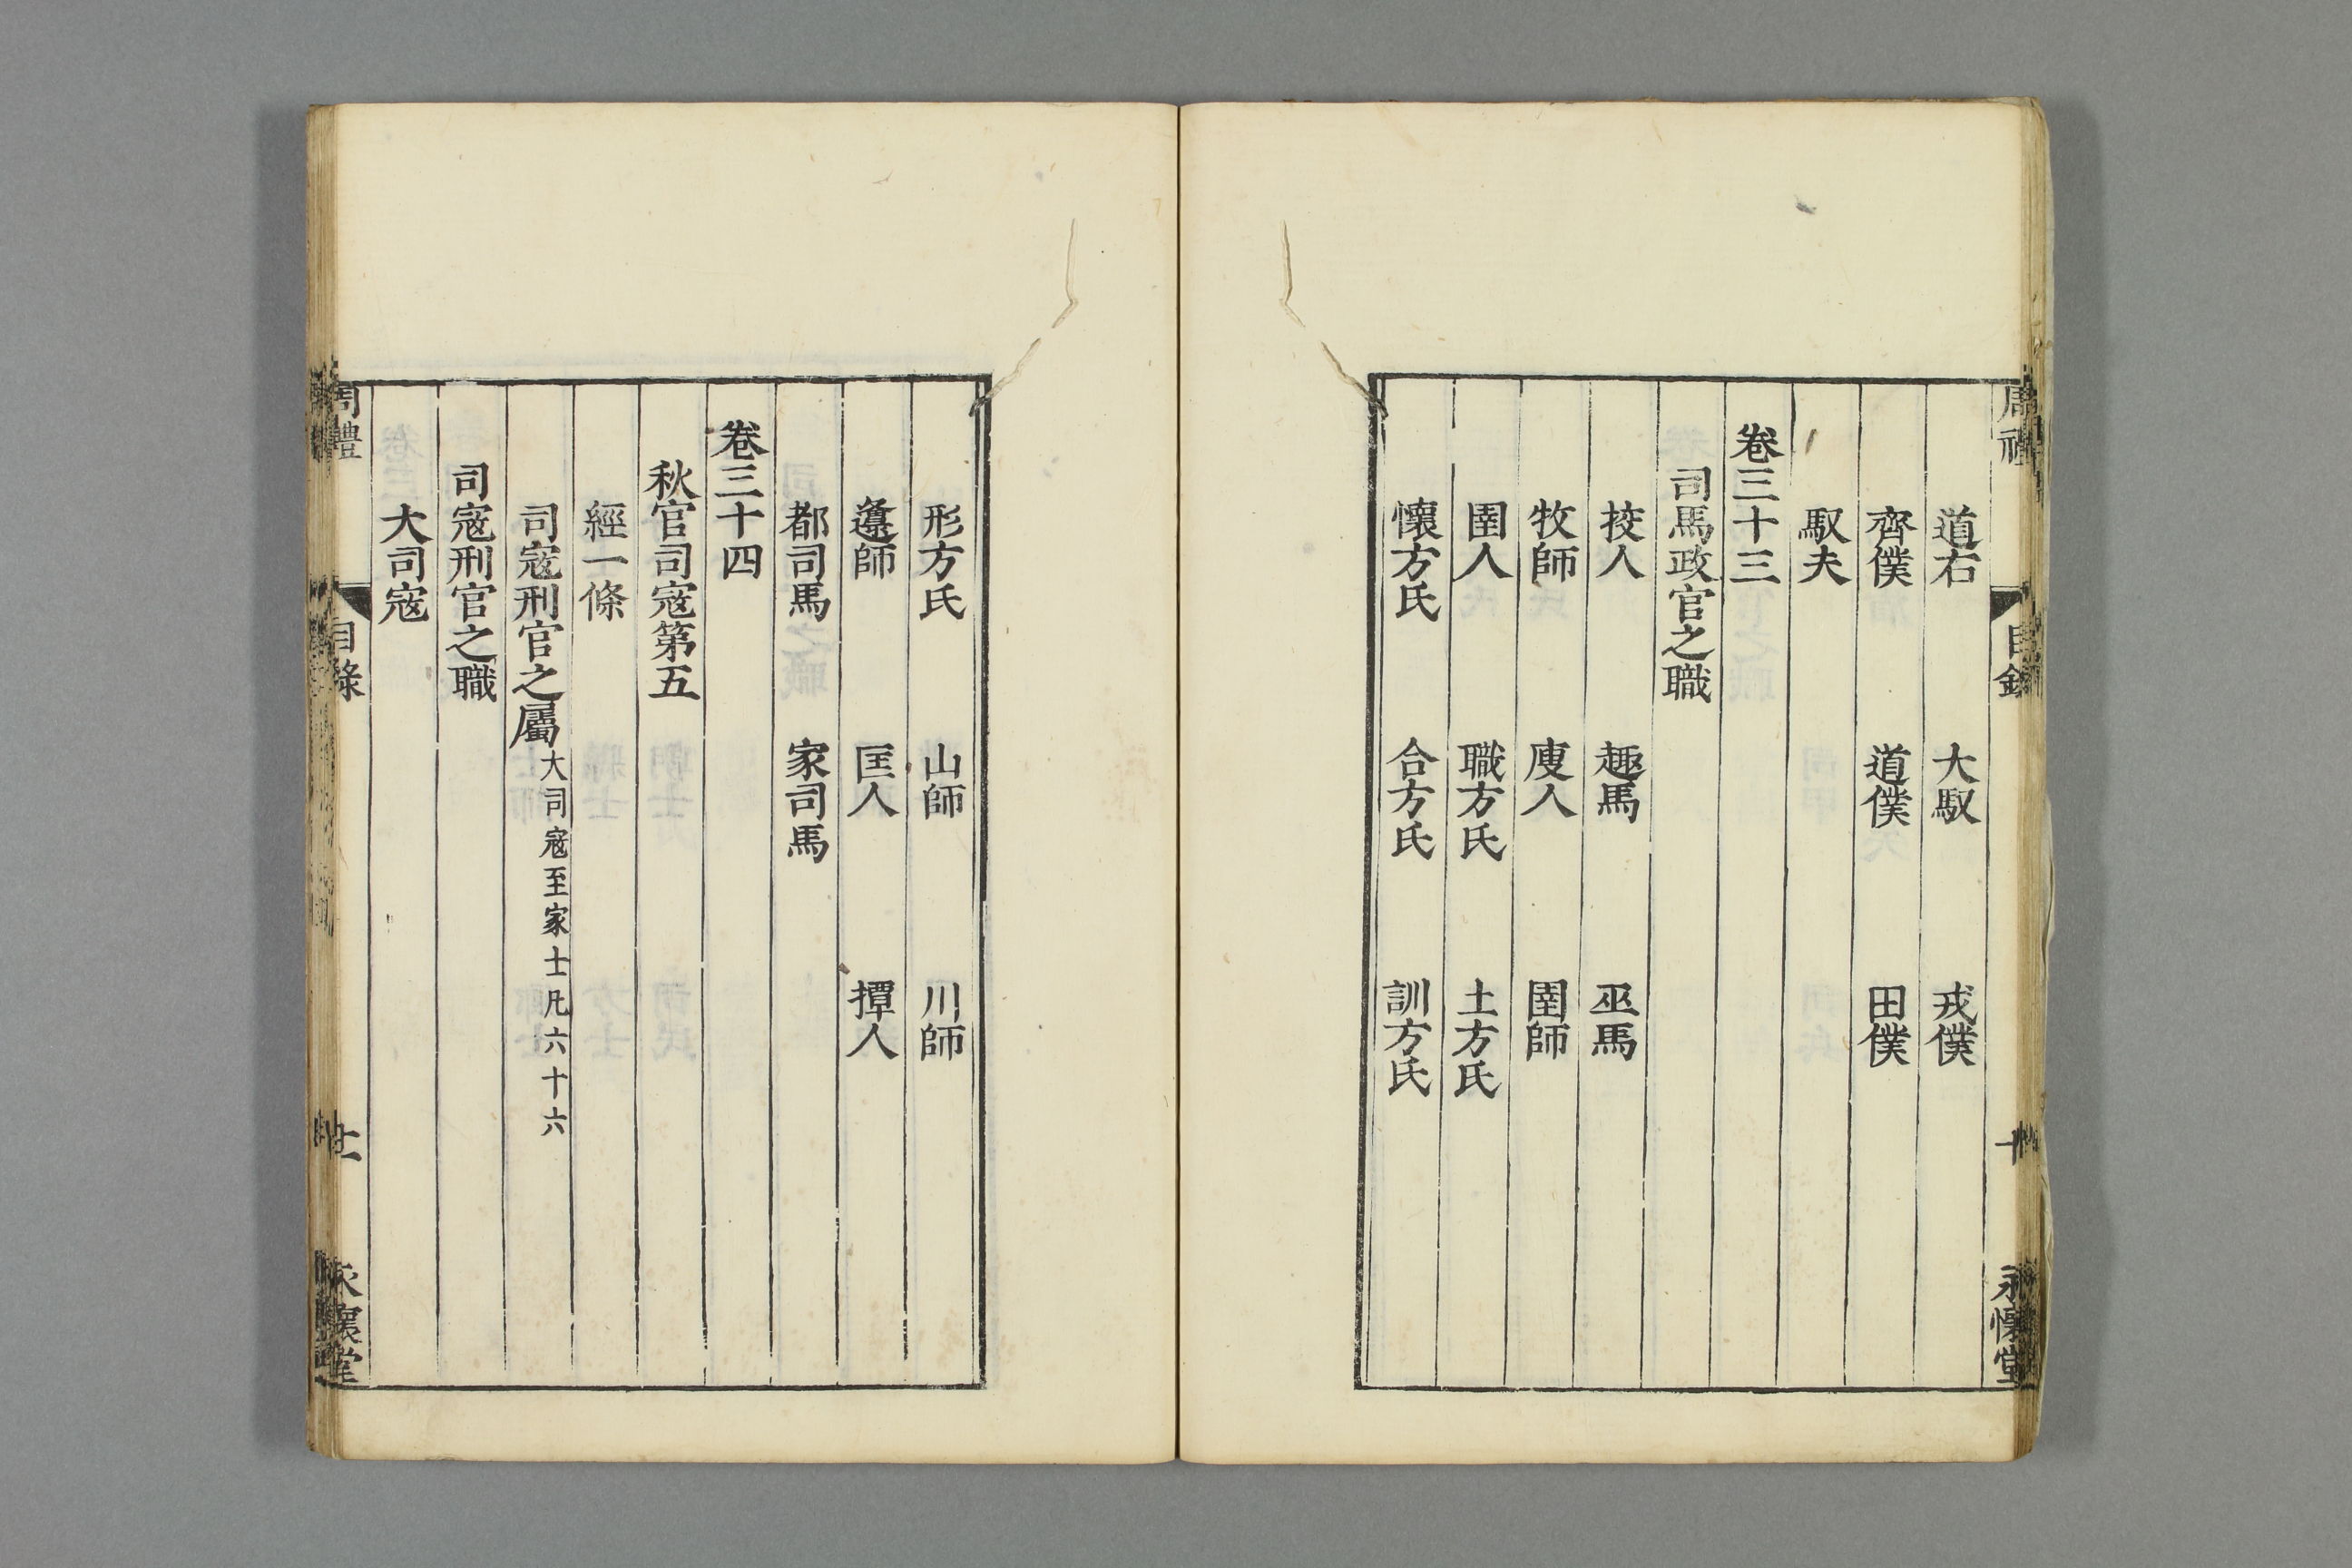 周禮
目錄
十
永懷堂
道右 大馭 戎僕
齊僕 道僕 田僕
馭夫
卷三十三
司馬政官之職
挍人 趣馬 巫馬
牧師 廋人 圉師
圉人 職方氏 土方氏
懷方氏 合方氏 訓方氏
形方氏 山師 川師
邍師 匡人 撢人
都司馬 家司馬
卷三十四
秋官司寇第五
經一條
司寇刑官之屬大司寇至家士凡六十六
司寇刑官之職
大司寇
周禮
目錄
十一
永懷堂